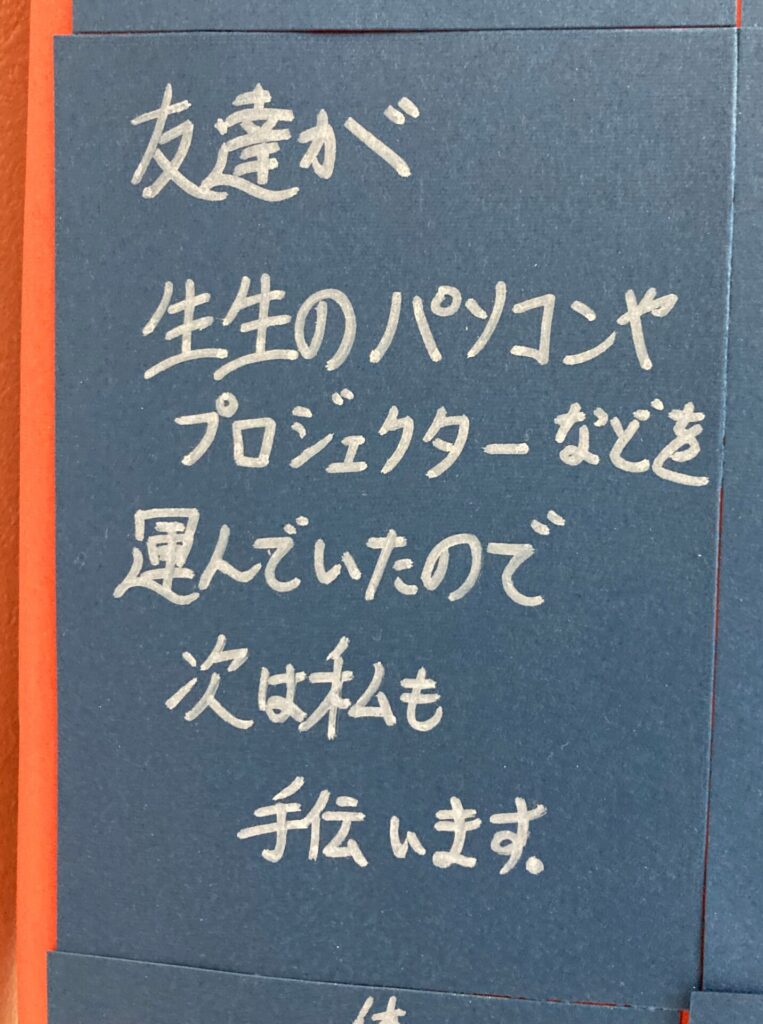 友達が
生生のパソコンや
プロジェクターなどを
運んでいたので
次は私も
手伝います.